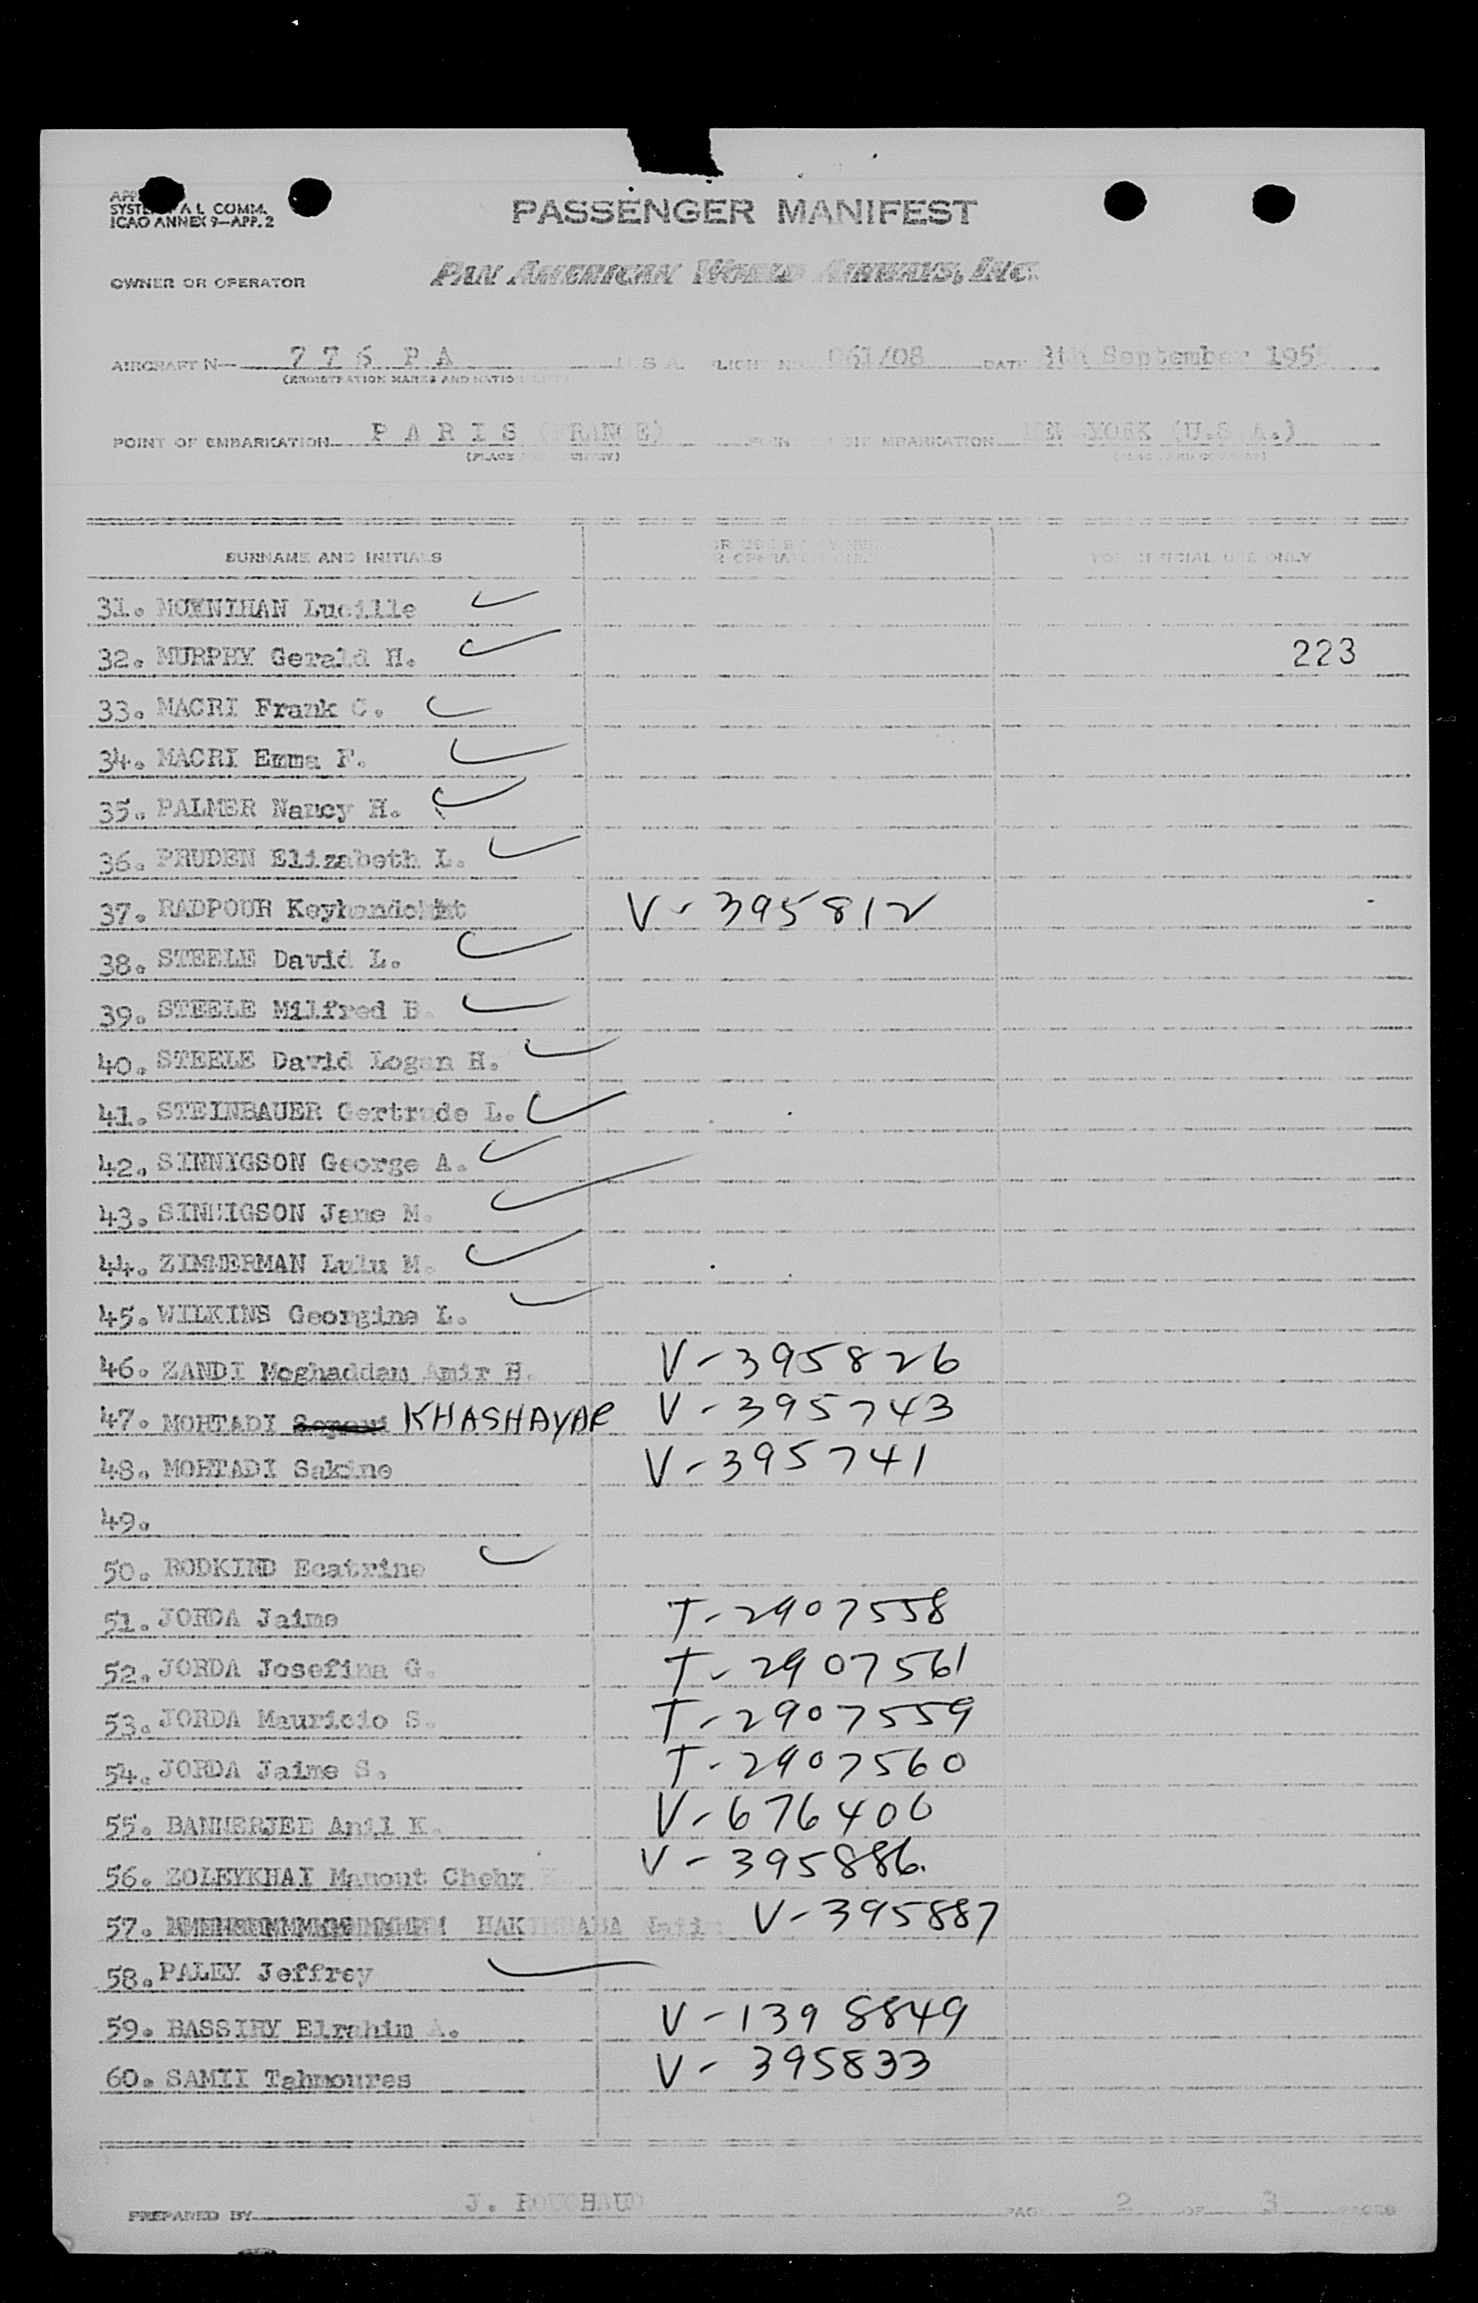 SYSTEM A L COMM.
ICAO ANNEX 9—APP. 2
PASSENGER MANIFEST
OWNER OR OPERATOR
PAN AMERICAN WORLD AIRWAYS, INC.
AIRCRAFT N— 7 7 6 P A U.S.A. FLIGHT NO. 061/08 DATE September 195
(REGISTRATION MARKS AND NATIONALITY)
POINT OF EMBARKATION P A R I S (FRANCE) POINT OF DISEMBARKATION NEW YORK (U.S.A.)
(PLACE AND COUNTRY) (PLACE AND COUNTRY)
SURNAME AND INITIALS FOR USE BY OWNER OR OPERATOR ONLY FOR OFFICIAL USE ONLY
31. MOYNIHAN Lucille
32. MURPHY Gerald H. 223
33. MACRI Frank C.
34. MACRI Emma F.
35. PALMER Nancy H.
36. PRUDEN Elizabeth L.
37. RADPOUR V-395812
38. STEELE David L.
39. STEELE Milfred B.
40. STEELE David Logan H.
41. STEINBAUER Gertrude L.
42. SINNIGSON George A.
43. SINNIGSON Jane M.
44. ZIMMERMAN Lulu M.
45. WILKINS Georgina L.
46. ZANDI Moghaddam Amir H. V-395826
47. MOHTADI KHASHAYAR V-395743
48. MOHTADI Sakine V-395741
49.
50. BODKIND Ecatrine
51. JORDA Jaime T-2907558
52. JORDA Josefina G. T-2907561
53. JORDA Mauricio S. T-2907559
54. JORDA Jaime S. T-2907560
55. BANNERJEE Anil K. V-676406
56. ZOLEYKHAI Manout Chehr V-395886.
57. V-395887
58. PALEY Jeffrey
59. BASSIRY Elrahim A. V-1398849
60. SAMII Tahmoures V-395833
PREPARED BY J. POUCHAUD PAGE 2 OF 3 PAGES